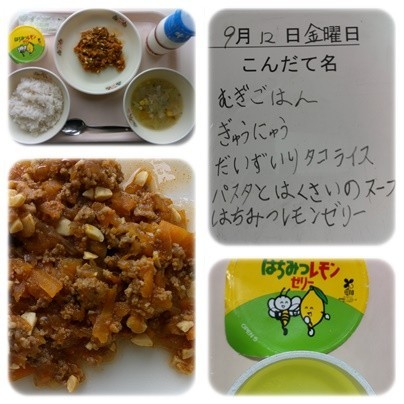 9月12日金曜日
こんだて名
むぎごはん
ぎゅうにゅう
だいずいりタコライス
パスタとはくさいのスープ
はちみつレモンゼリー
はちみつレモン
ゼリー